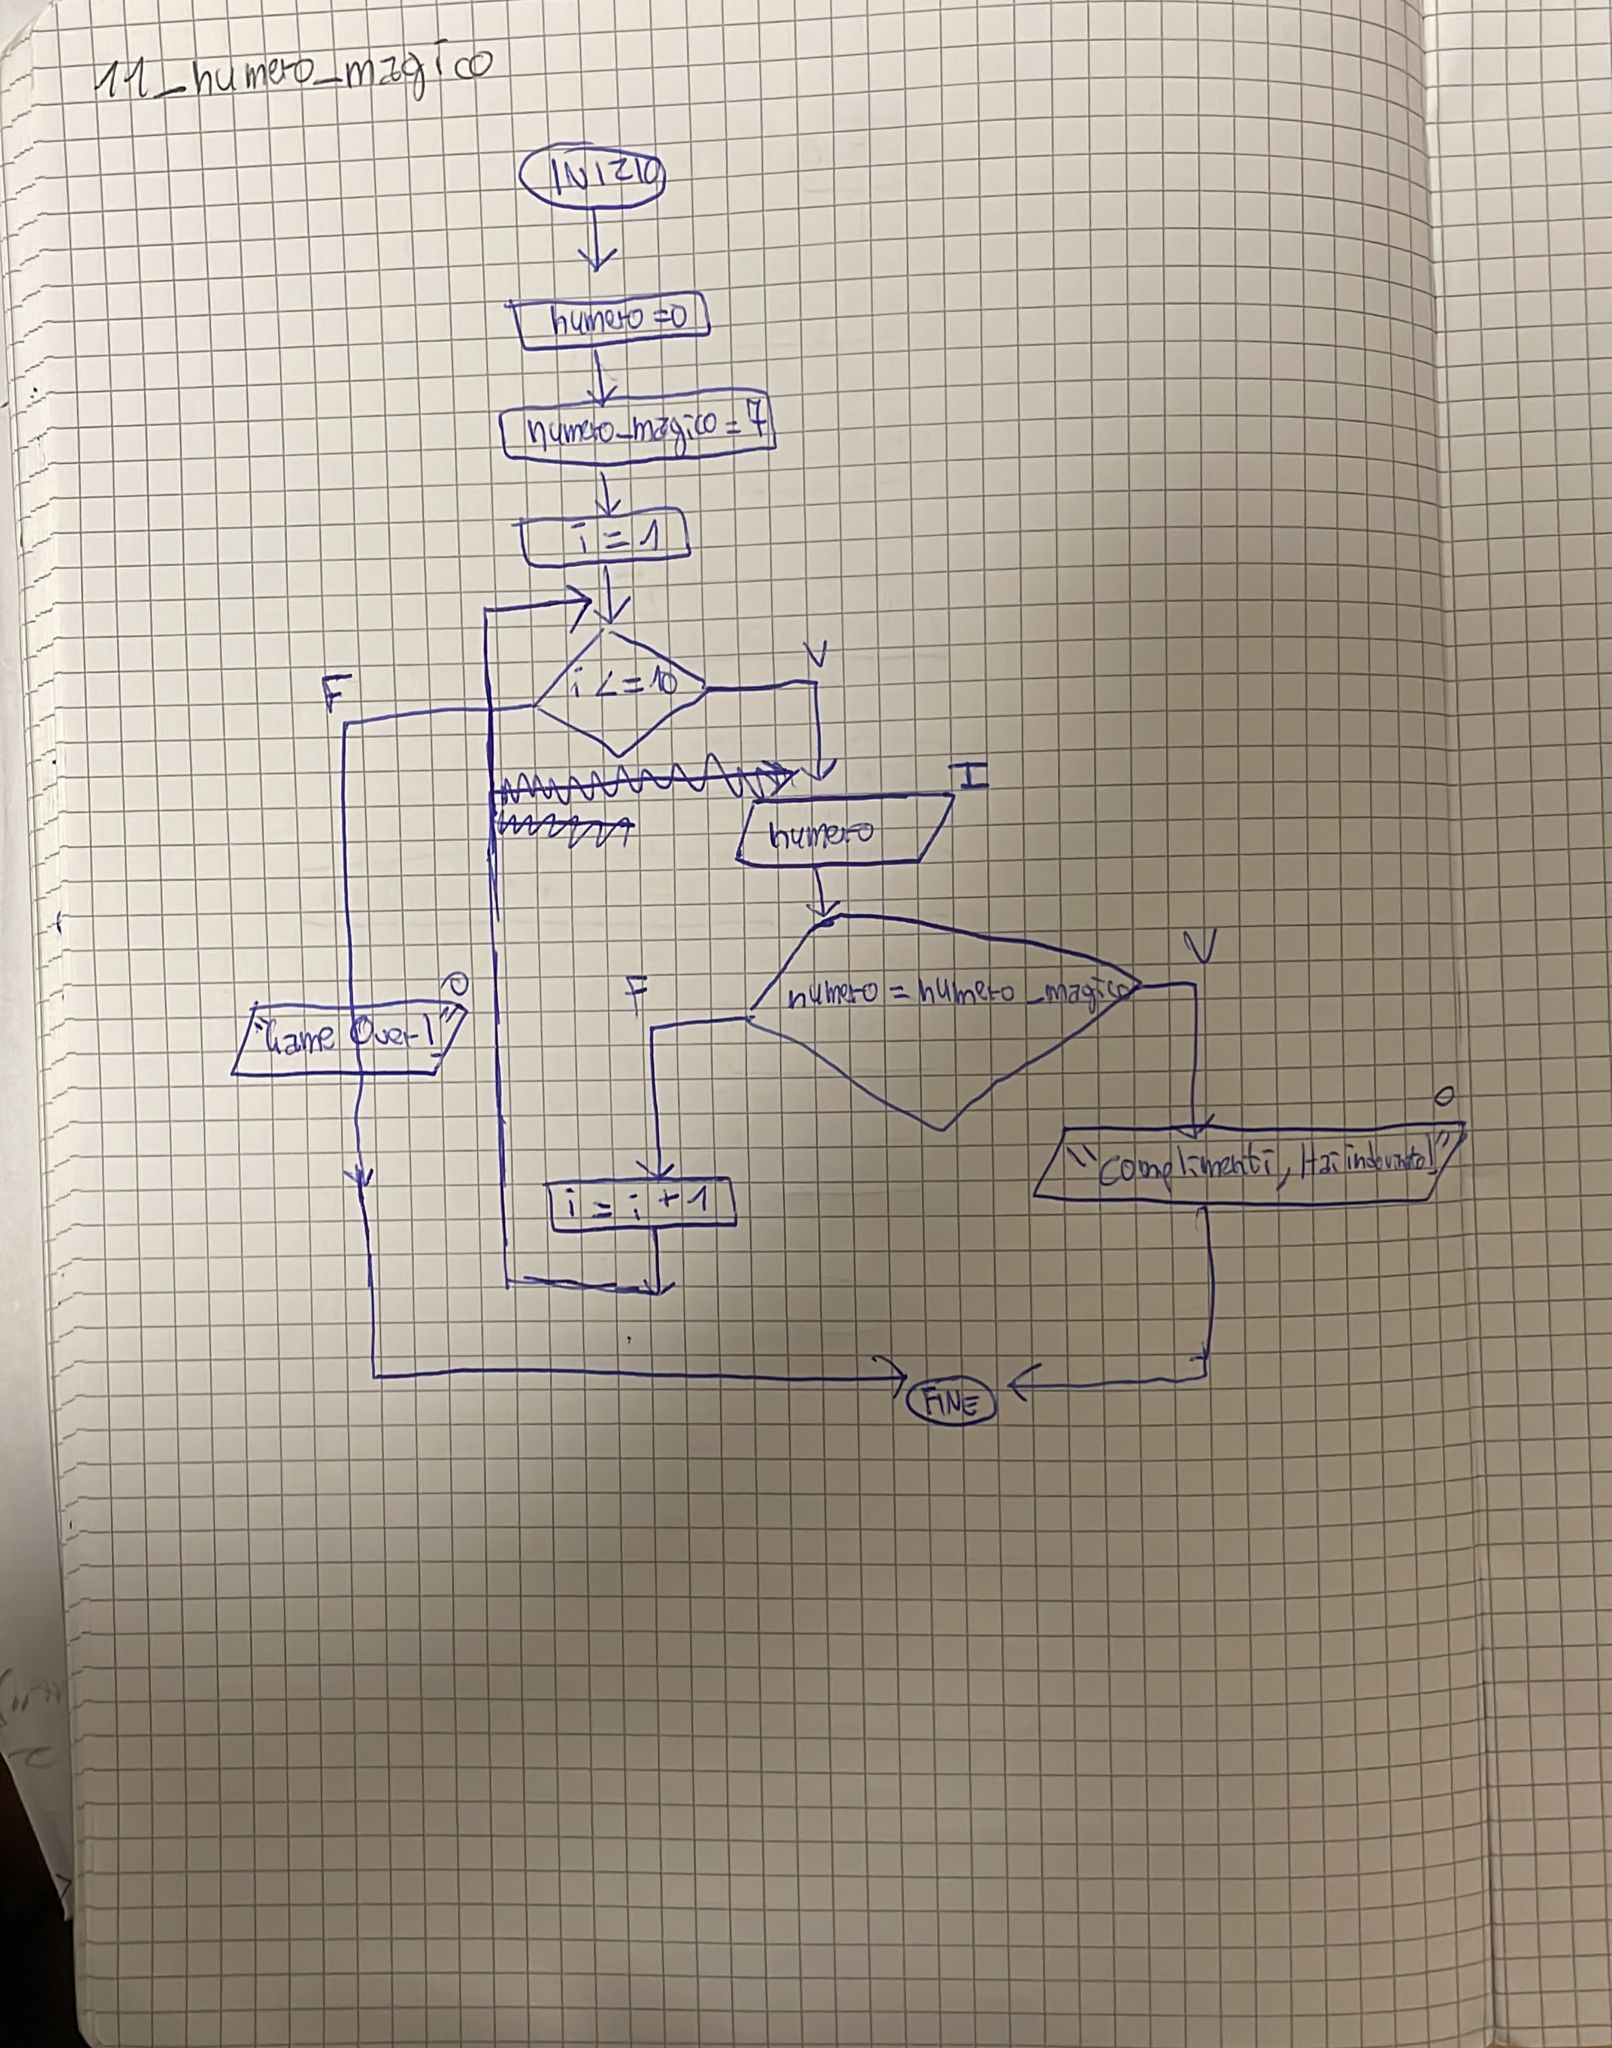 11_numero_magico
INIZIO
numero=0
numero_magico = 7
i = 1
i <= 10
V
F
I
numero
numero = numero_magico
V
F
O
"Game Over!"
O
"Complimenti, Hai indovinato!"
i = i + 1
FINE